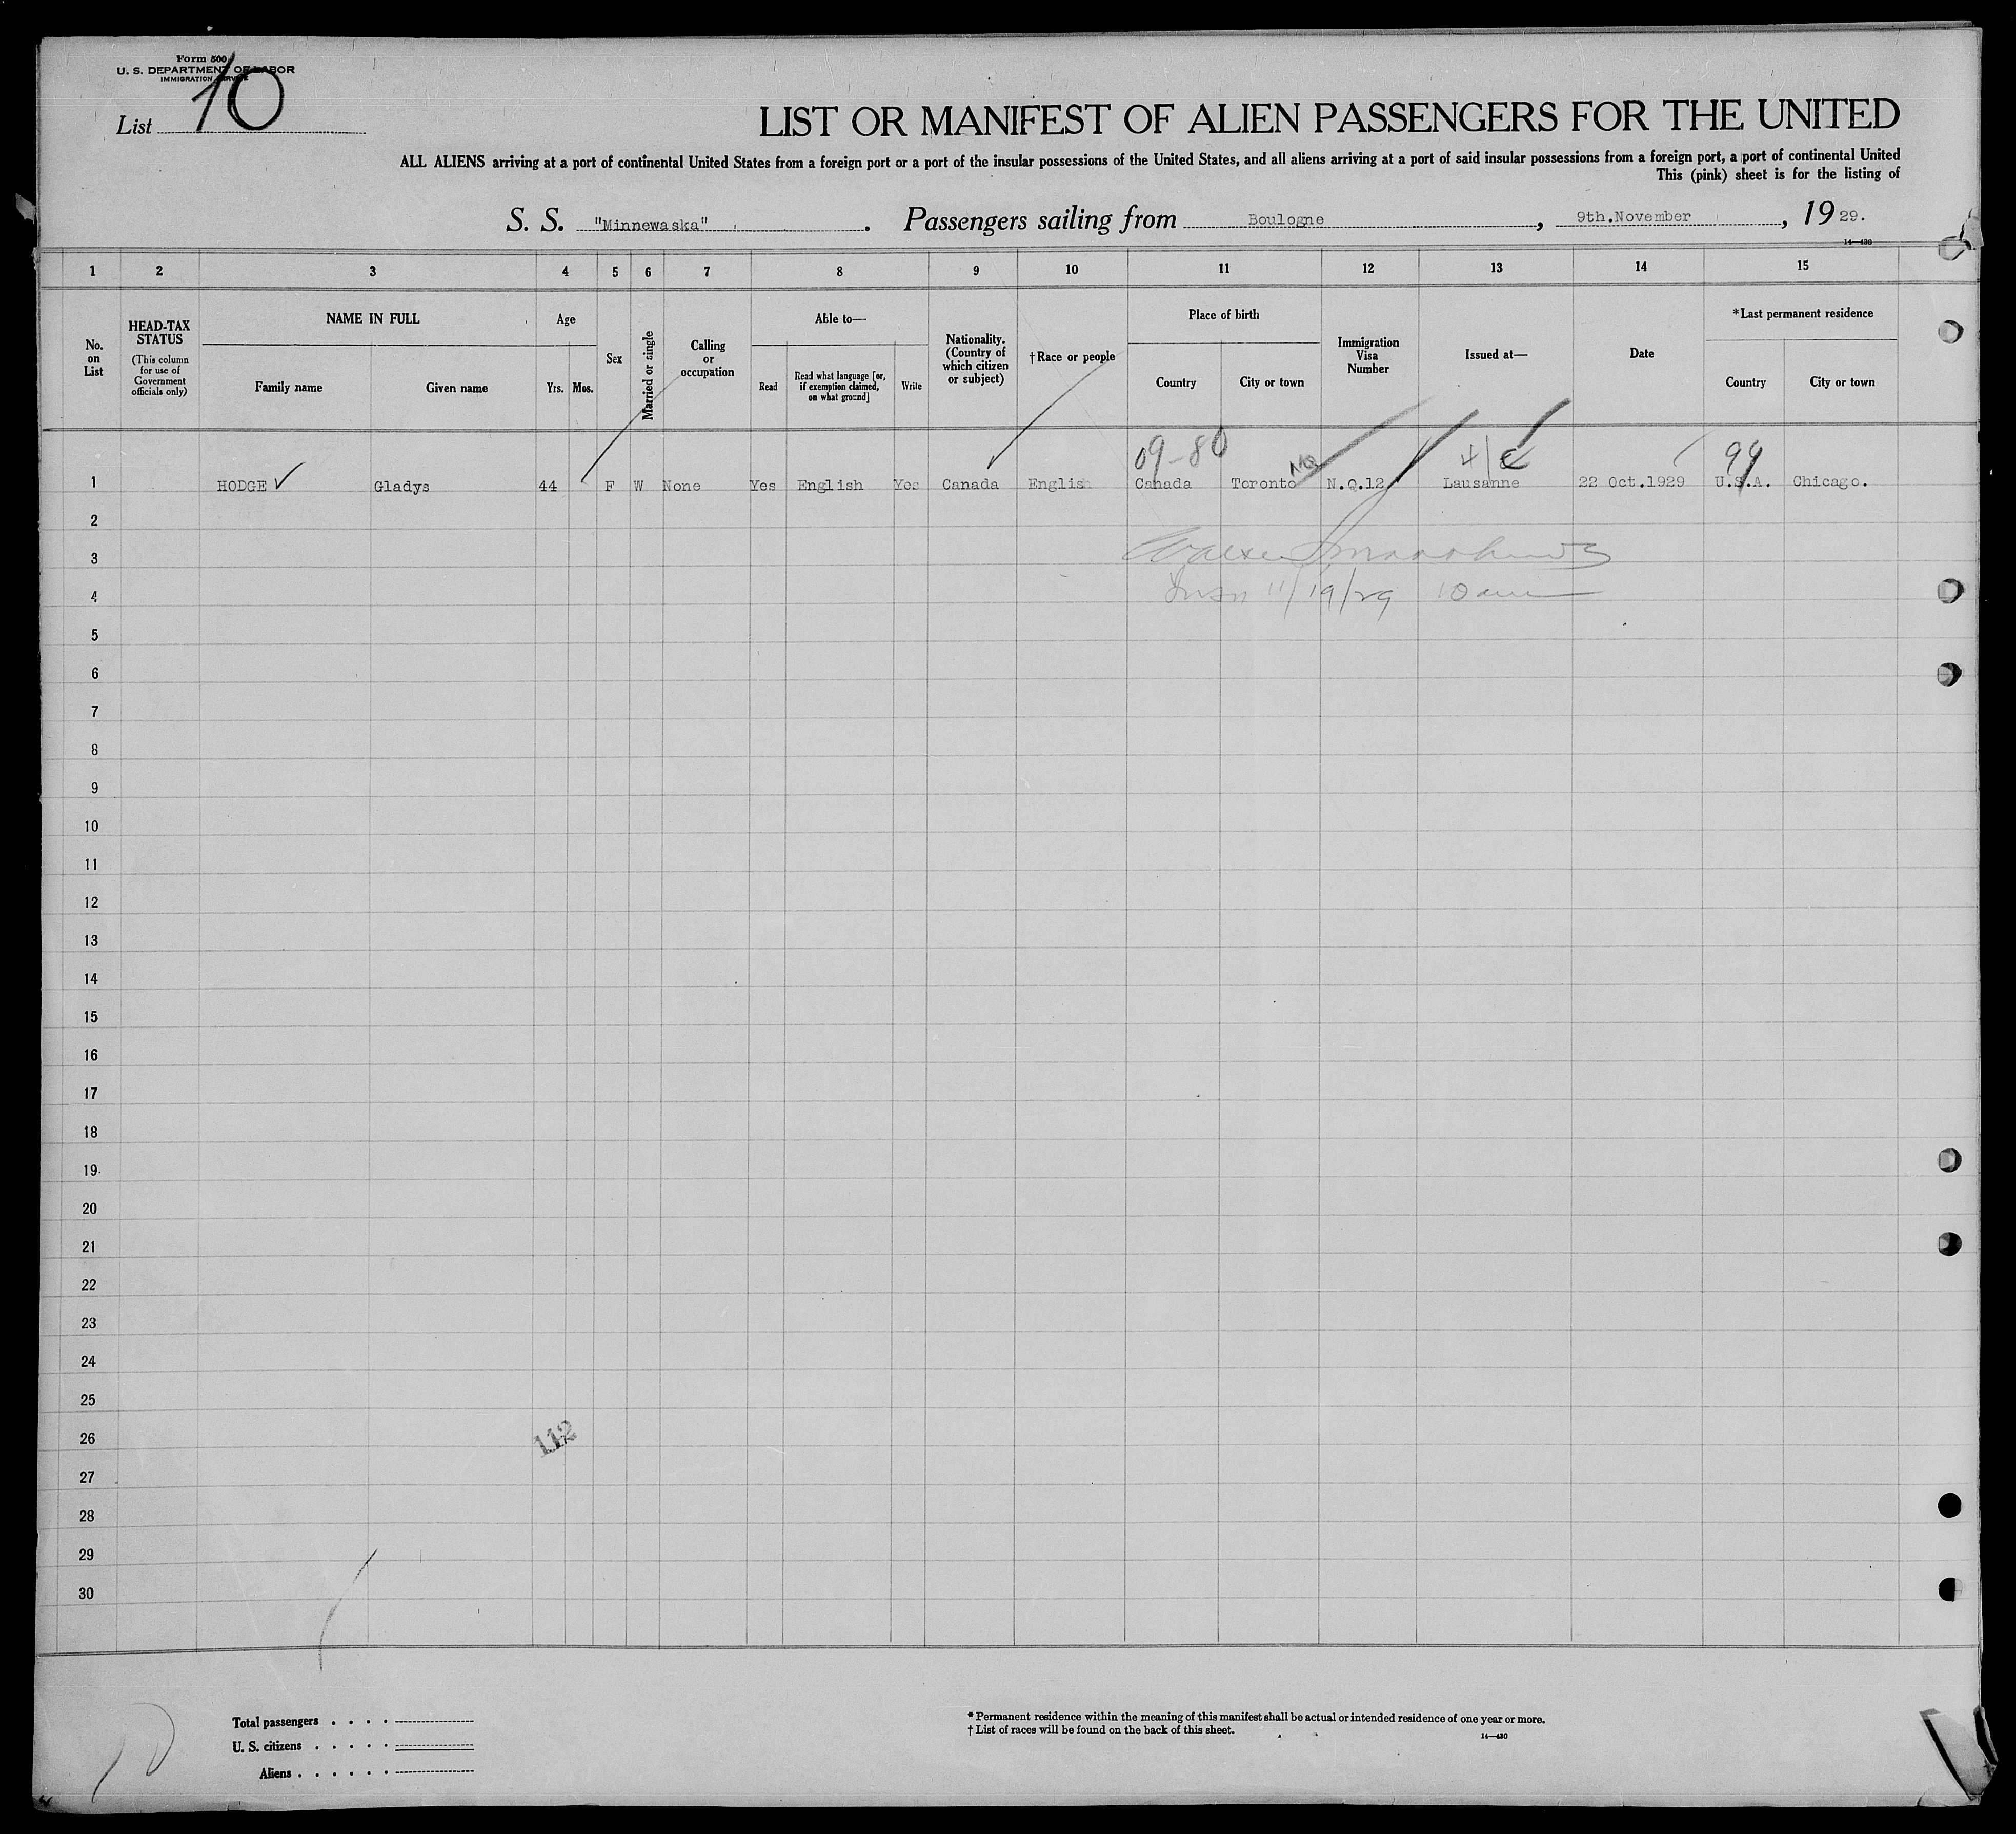 Form 500
U. S. DEPARTMENT OF LABOR
IMMIGRATION SERVICE
List 10
LIST OR MANIFEST OF ALIEN PASSENGERS FOR THE UNITED
ALL ALIENS arriving at a port of continental United States from a foreign port or a port of the insular possessions of the United States, and all aliens arriving at a port of said insular possessions from a foreign port, a port of continental United
This (pink) sheet is for the listing of
S. S. "Minnewaska". Passengers sailing from Boulogne, 9th.November, 1929.
14—430
1 2 3 4 5 6 7 8 9 10 11 12 13 14 15
No. on List
HEAD-TAX STATUS
(This column for use of Government officials only)
NAME IN FULL
Family name Given name
Age
Yrs. Mos.
Sex
Married or single
Calling or occupation
Able to—
Read Read what language [or, if exemption claimed, on what ground] Write
Nationality. (Country of which citizen or subject)
†Race or people
Place of birth
Country City or town
Immigration Visa Number
Issued at—
Date
*Last permanent residence
Country City or town
09-80 99
1 HODGE ✓ Gladys 44 F W None Yes English Yes Canada English Canada Toronto N.Q.12 Lausanne 22 Oct.1929 U.S.A. Chicago.
2
3
4 11/19/29 10 am
5
6
7
8
9
10
11
12
13
14
15
16
17
18
19
20
21
22
23
24
25
26 112
27
28
29
30
Total passengers . . . .
U. S. citizens . . . . .
Aliens . . . . . .
10
* Permanent residence within the meaning of this manifest shall be actual or intended residence of one year or more.
† List of races will be found on the back of this sheet.
14—430